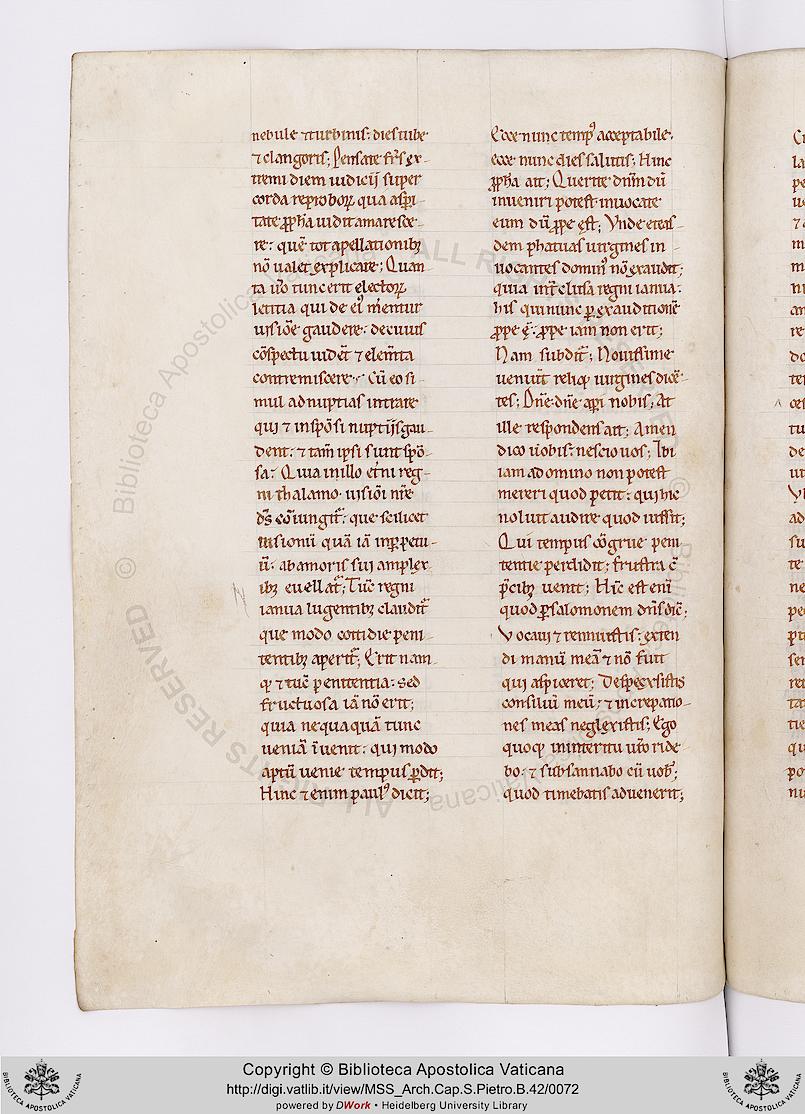 nebule ⁊ turbinis: dies tube
⁊ clangoris; Pensate frs̄ ex-
tremi diem iudicij super
corda reproboꝝ qua aspi-
tate ꝓpha uidit amaresce-
re: quē tot apellationibꝫ
nō ualet explicare; Quan-
ta u̅o tunc erit electoꝝ
letitia qui de ei᾽ m̅entur
uisiōe gaudere: de cuius
cōspectu uidēt ⁊ elem̄ta
contremiscere; Cū eo si-
mul ad nuptias intrare
qui ⁊ in spōsi nuptijs gau-
dent: ⁊ tam̄ ipsi sunt spō-
sa: Quia in illo et̄ni reg-
ni thalamo uisiōi nr̄e
ds̄ cōiungit᷑: que scilicet
uisionū quā iā in ꝑpetu-
ū: ab amoris sui amplex
ibꝫ euellat᷑; Tūc regni
ianua lugentibꝫ claudit᷑
que modo cottidie peni-
tentibꝫ aperit᷑; Erit nam-
qꝫ ⁊ tūc penitentia: sed
fructuosa iā nō erit;
quia nequaquā tunc
ueniā īuenit: qui modo
aptū uenie tempus ꝑdit;
Hinc ⁊ enim paul᾽ dicit;
Ecce nunc temp᾽ acceptabile:
ecce nunc dies salutis; Hinc
ꝓpha ait; Querite dn̄m dū
inueniri potest inuocate
eum dū ꝓpe est; Vnde eteas-
dem phatuas uirgines in-
uocantes domin᾽ nō exaudit;
quia int̄clusa regni ianua:
his qui nunc ꝑ exauditionē
ꝓpe ē: ꝓpe iam non erit;
Nam subdit᷑; Nouissime
ueniūt reliqꝫ uirgines dicē-
tes; Dn̄e dn̄e aꝑi nobis; At
ille respondens ait; Amen
dico uobis: nescio uos; Ibi
iam a domino non potest
mereri quod petit: qui hic
noluit audire quod iussit;
Qui tempus cōgrue peni
tentie perdidit; frustra c̄
p̄cibꝫ uenit; Hīc est enī
quod ꝑ salomonem dn̄s dic̄;
Vocaui ⁊ rennuistis: exten
di manū meā ⁊ nō fuit
qui aspiceret; Despexistis
consiliū meū: ⁊ increpatio-
nes meas neglexistis; Ego
quoqꝫ in interitu ur̄o ride-
bo: ⁊ subsannabo cū uob᾽;
quod timebatis aduenerit;
Copyright © Biblioteca Apostolica Vaticana
http://digi.vatlib.it/view/MSS_Arch.Cap.S.Pietro.B.42/0072
powered by DWork • Heidelberg University Library